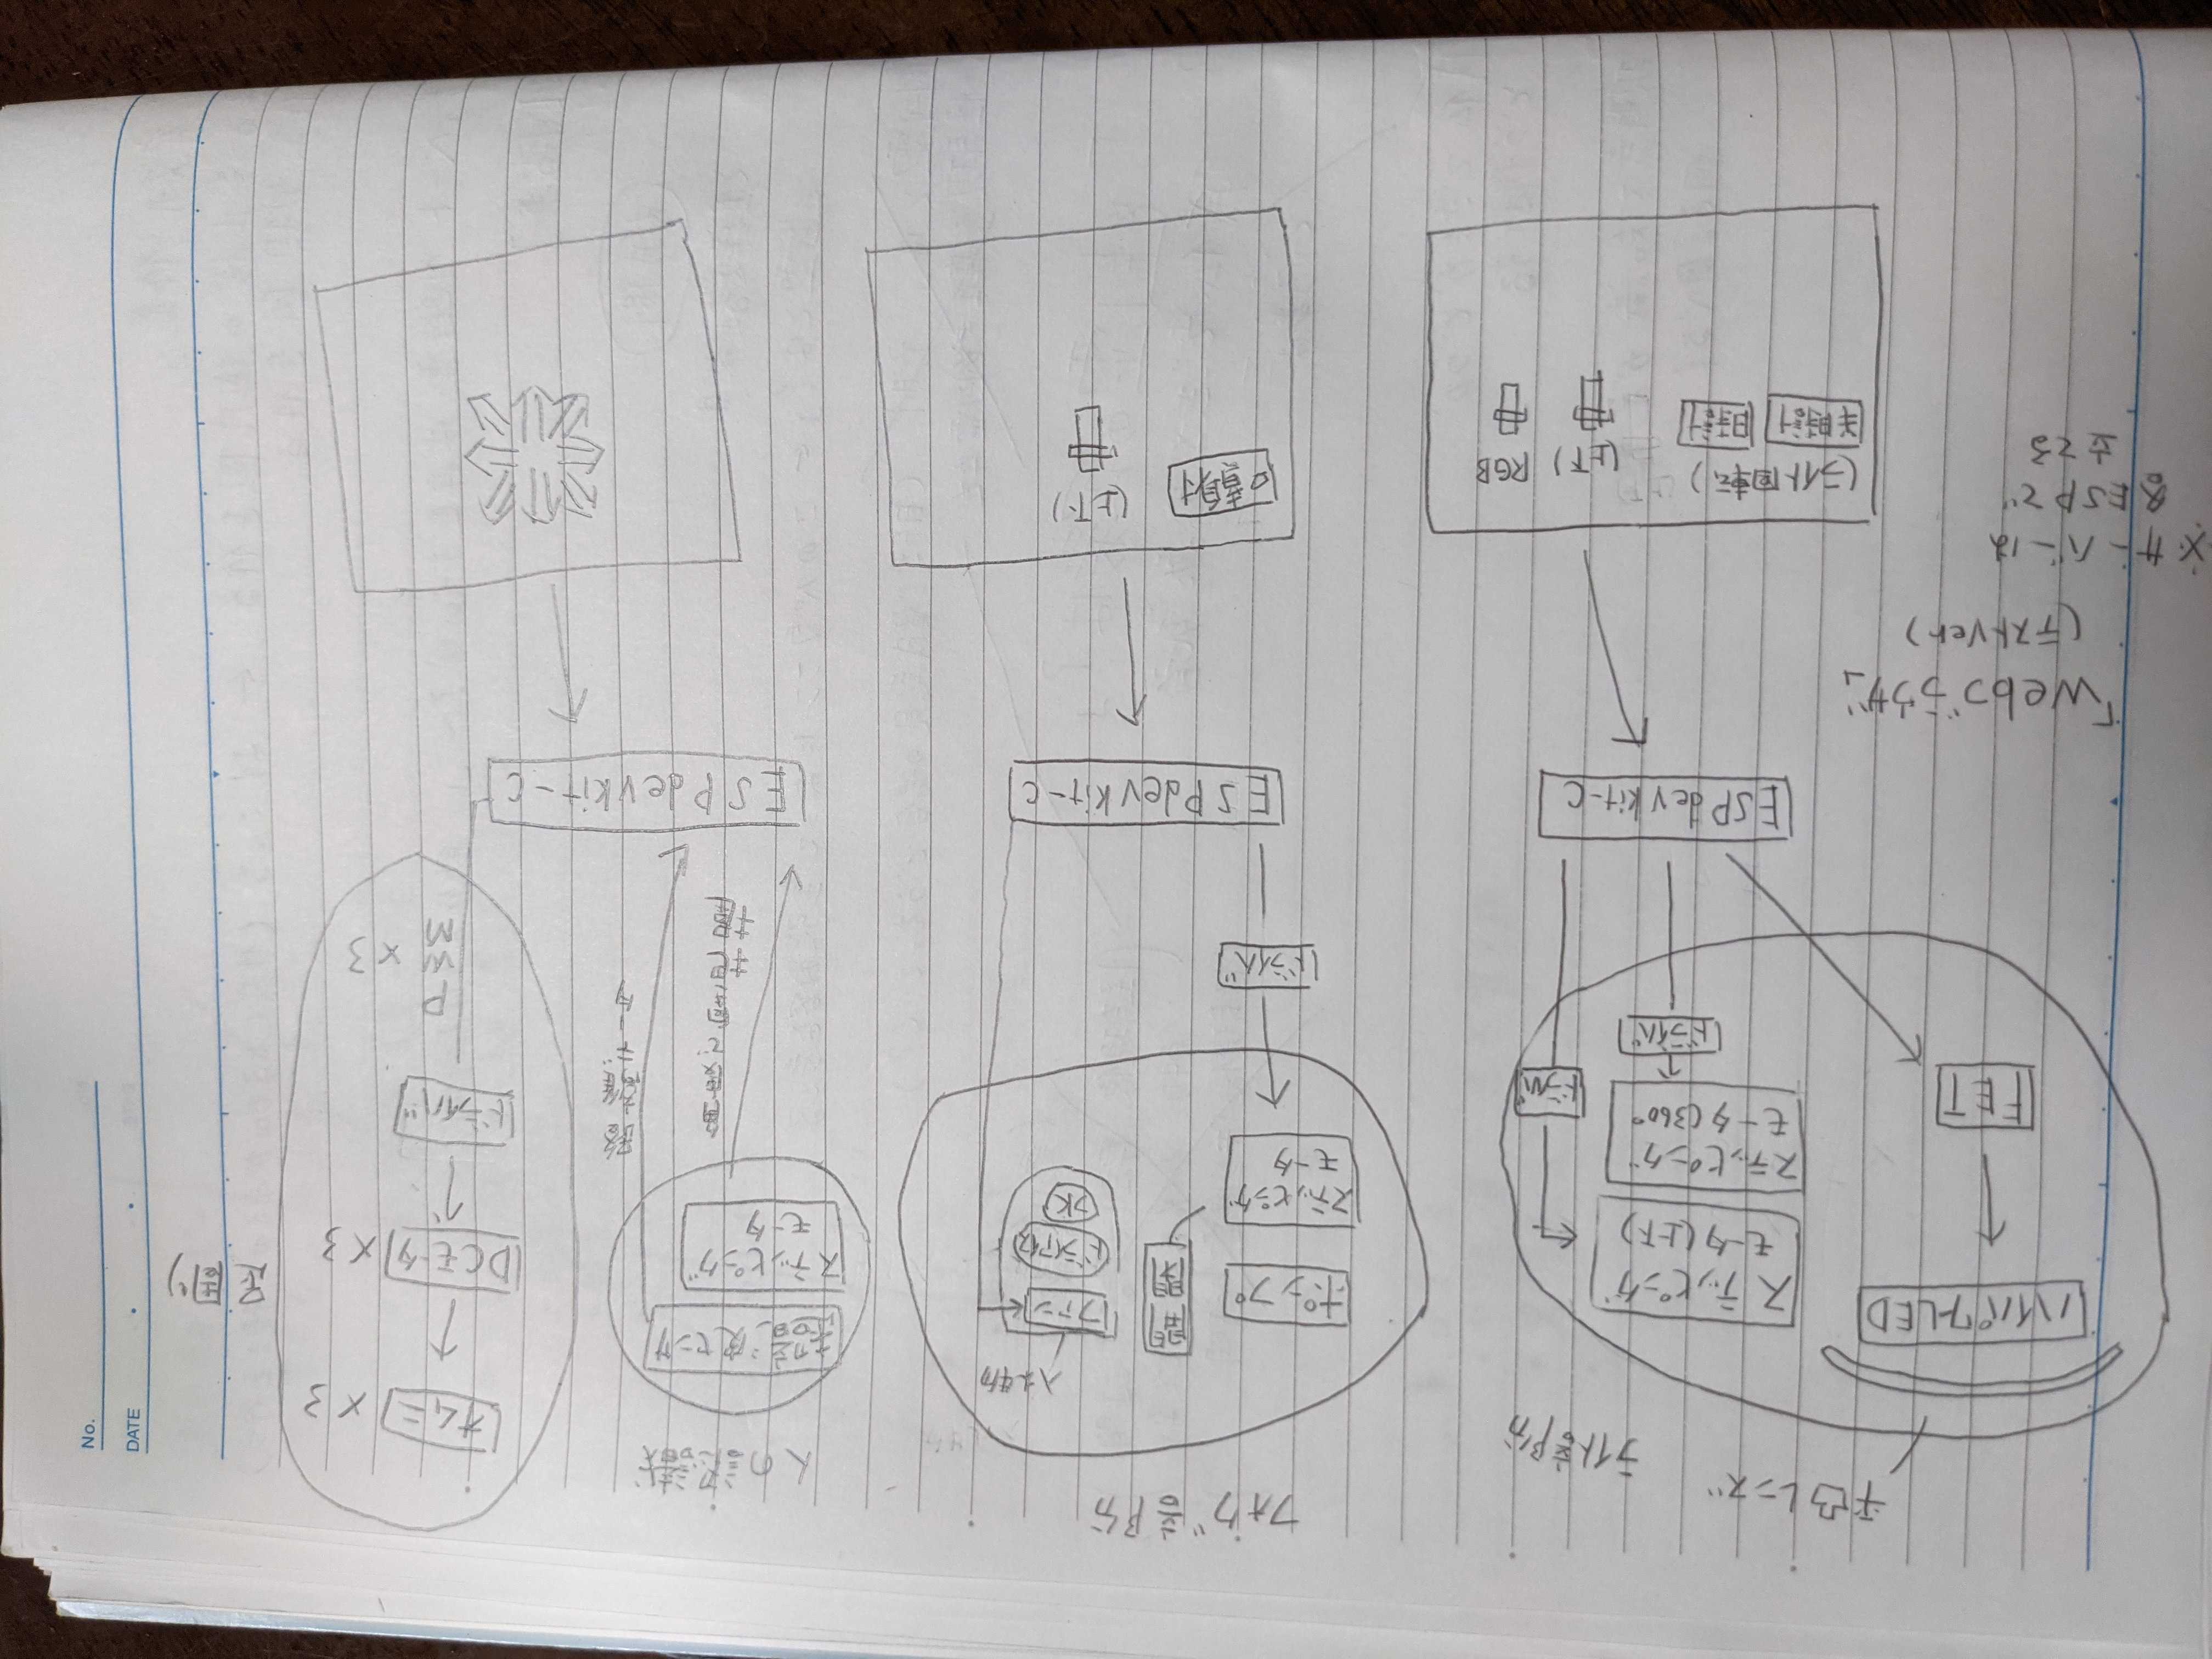 平凸レンズ
ライト部分
ハイパワーLED
ステッピング
モータ(上下)
ステッピング
モータ(360°
FET
ドライバ
ドライバ
ESPdevkit-c
フォグ部分
入れ物
ポンプ
開
閉
ファン
ドライアイス
水
ステッピング
モータ
ドライバ
ESPdevkit-c
人の認識
超音波センサ
ステッピング
モータ
角度で向き把握
距離データ
ESPdevkit-c
オムニ ×3
DCモータ ×3
ドライバ
PWM ×3
足周り
「webブラウザ」
(テストver)
※サーバーは
各ESPで
立てる
(ライト回転)
半時計 時計
(上下)
RGB
噴射
(上下)
No.
DATE